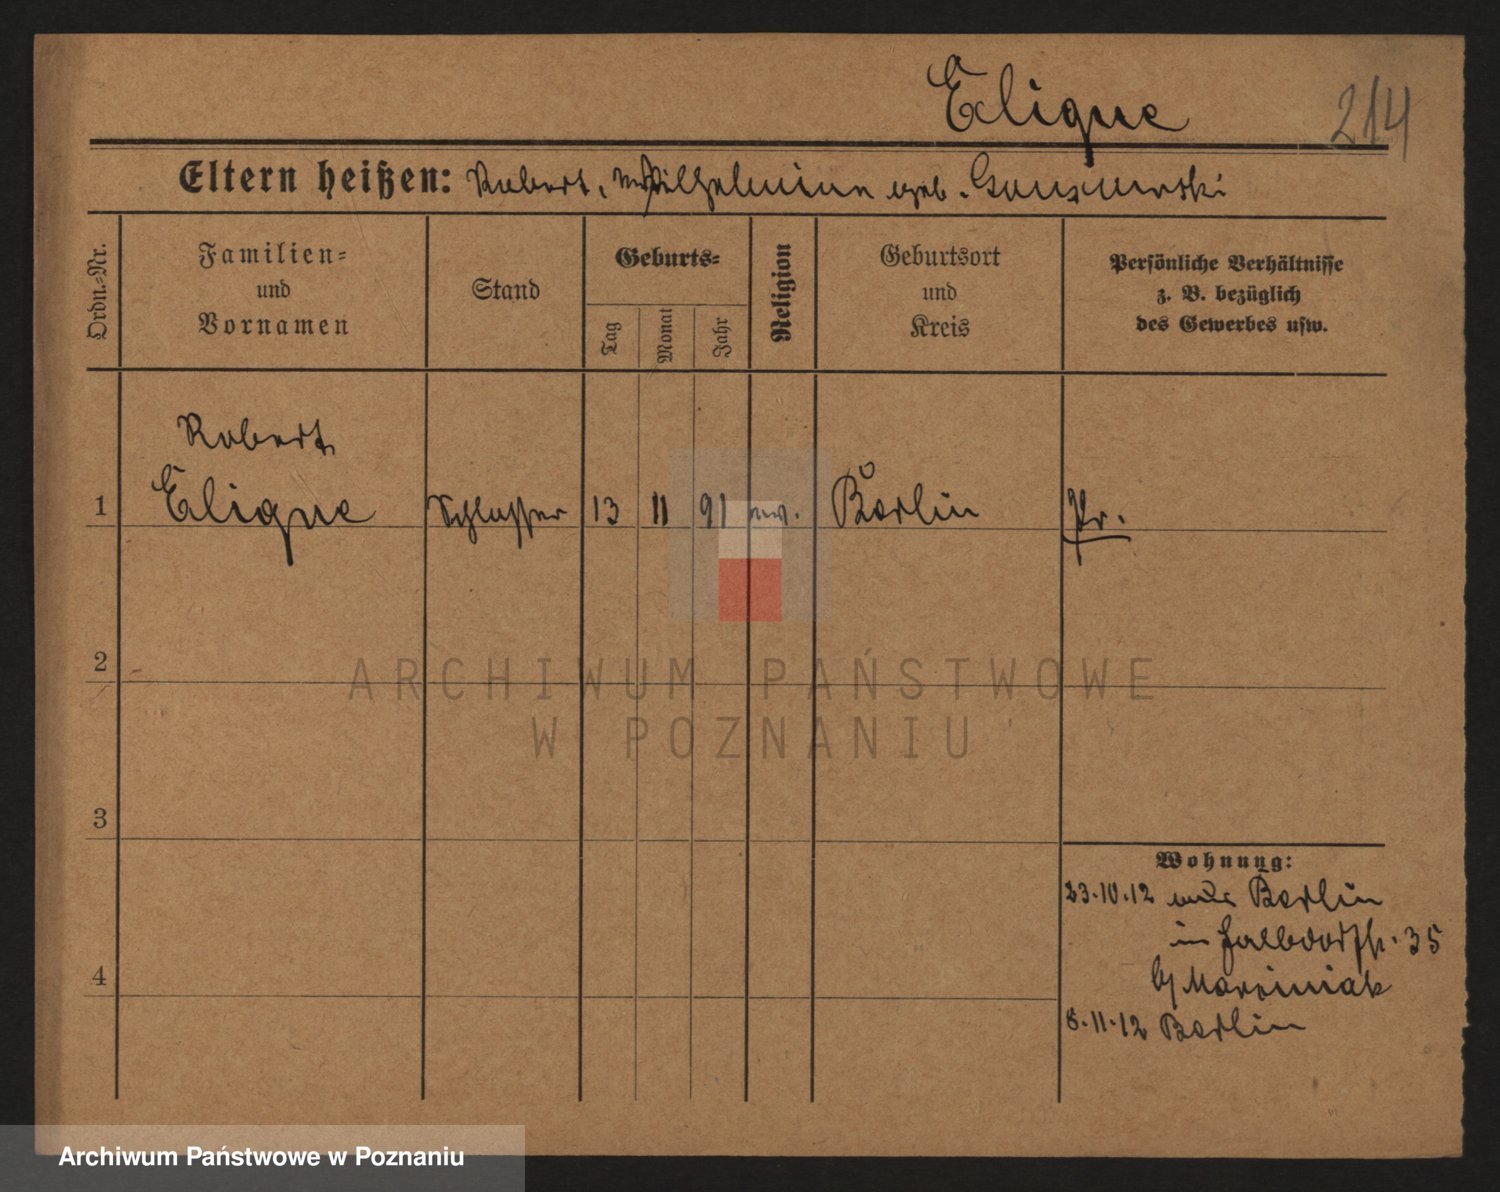 Elique 214
Eltern heißen: Robert, Wilhelmine geb.
Ordn.-Nr.
Familien-
und
Vornamen
Stand
Geburts-
Tag
Monat
Jahr
Religion
Geburtsort
und
Kreis
Persönliche Verhältnisse
z. B. bezüglich
des Gewerbes usw.
Robert
1 Elique Schlosser 13 11 91 ev. Berlin Pr.
2
3
4
Wohnung:
23.10.12 aus Berlin
in 35
b/ Marciniak
8.11.12 Berlin
ARCHIWUM PAŃSTWOWE
W POZNANIU
Archiwum Państwowe w Poznaniu